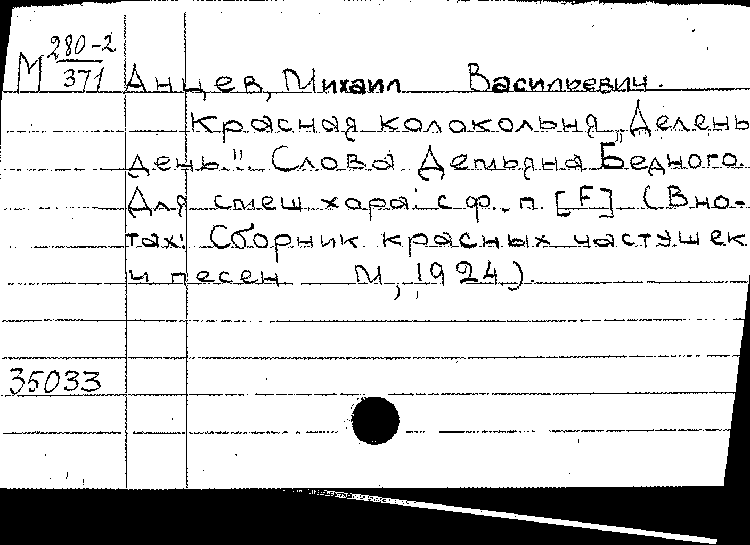 М 280-2/371
Анцев, Михаил Васильевич.
Красная колокольня „Делень
день". Слова Демьяна Бедного.
Для смеш хора с ф.-п. [F] (В но-
тах: Сборник красных частушек
и песен М, 1924)
35033